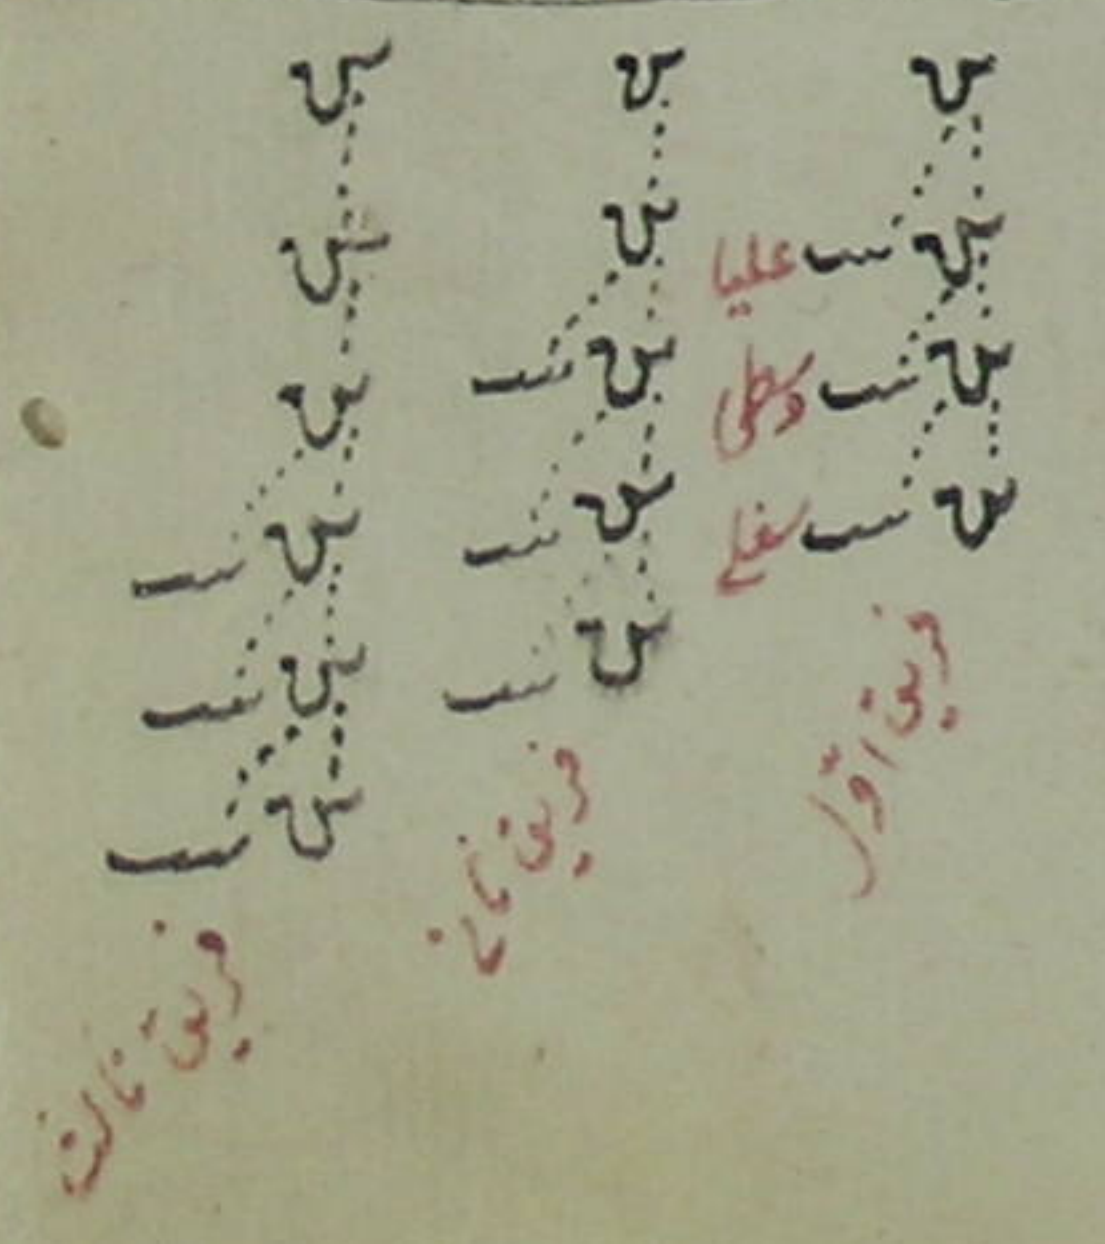 بن
بن بنت عليا
بن بنت وسطى
بن بنت سفلى
فريق اوّل
بن
بن
بن بنت
بن بنت
بن بنت
فريق ثانى
بن
بن
بن
بن بنت
بن بنت
بن بنت
فريق ثالث